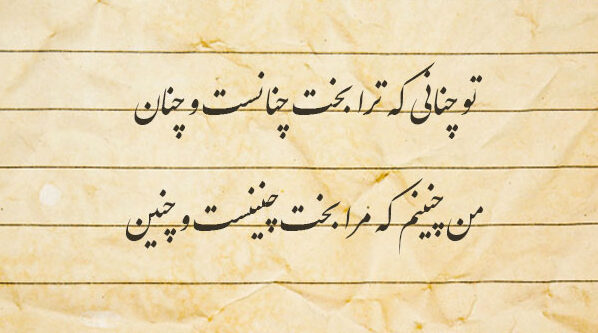 تو چنانی که ترا بخت چنانست و چنان
من چنینم که مرا بخت چنینست و چنین